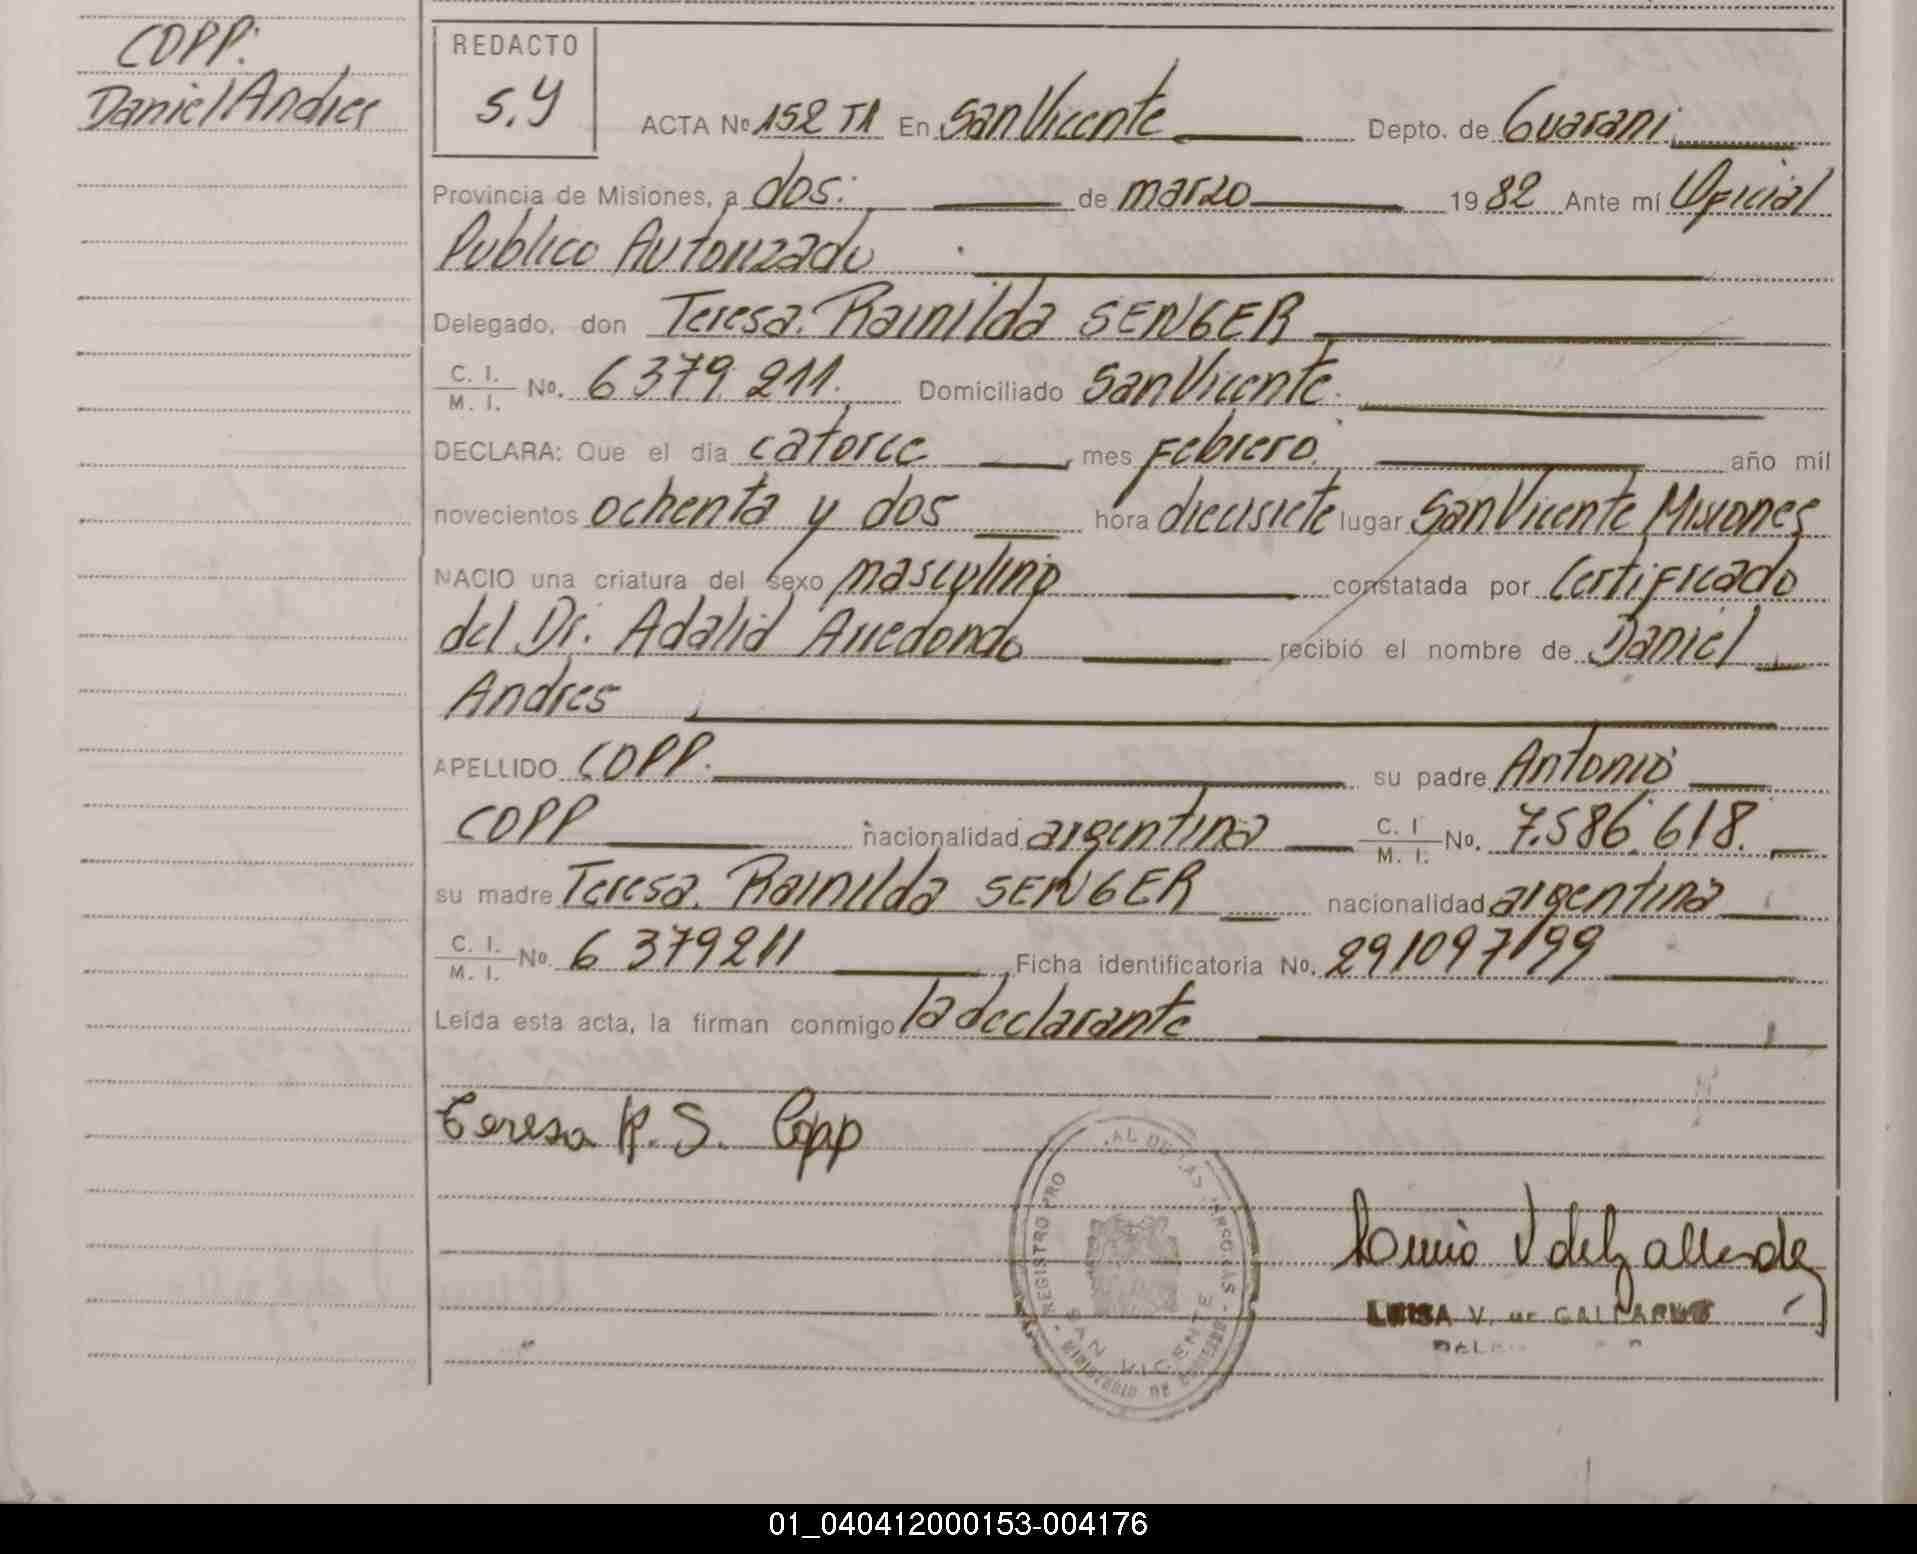 COPP:
Daniel Andres
REDACTO
S.Y
ACTA Nº 152 T1 En San Vicente Depto. de Guarani
Provincia de Misiones, a dos: de marzo 1982 Ante mí Oficial
Publico Autorizado
Delegado, don Teresa. Rainilda SENGER
C. I.
M. I. No. 6379.211. Domiciliado San Vicente.
DECLARA: Que el dia catorce, mes Febrero. año mil
novecientos ochenta y dos hora diecisiete lugar San Vicente Misiones
NACIO una criatura del sexo masculino constatada por Certificado
del Dr. Adalid Arredondo recibió el nombre de Daniel
Andres
APELLIDO COPP. su padre Antonio
COPP nacionalidad argentina C. I M. I. No. 7.586.618.
su madre Teresa. Rainilda SENGER nacionalidad argentina
C. I. M. I. No. 6379211, Ficha identificatoria No. 29109799
Leída esta acta, la firman conmigo la declarante
Teresa R. S. Copp
REGISTRO PRO AL DE LAS
SAN VICENTE
LUISA V. de
01_040412000153-004176